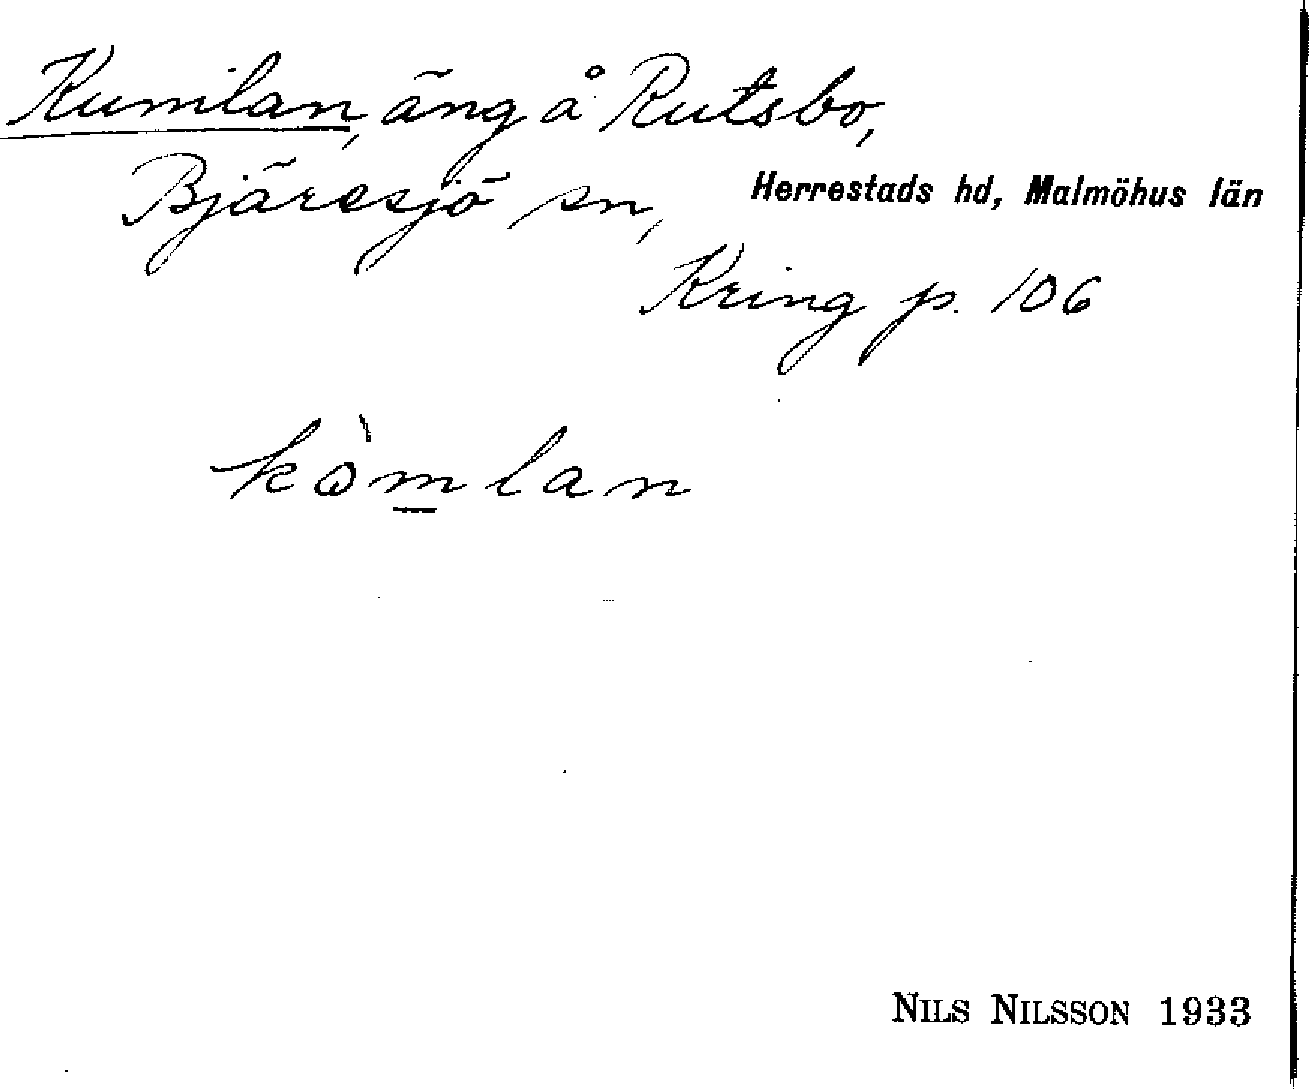 Kumlan, äng å Rutsbo,
Bjäresjö sn, Herrestads hd, Malmöhus län
Kring p. 106
kòmlan
NILS NILSSON 1933